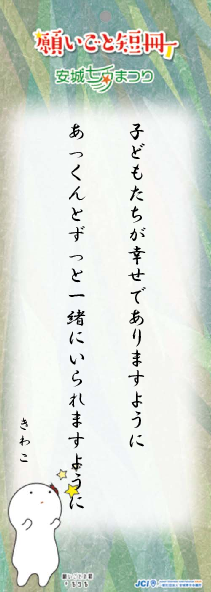 願いごと短冊
安城七夕まつり
子どもたちが幸せでありますように
あっくんとずっと一緒にいられますように
きわこ
JCI